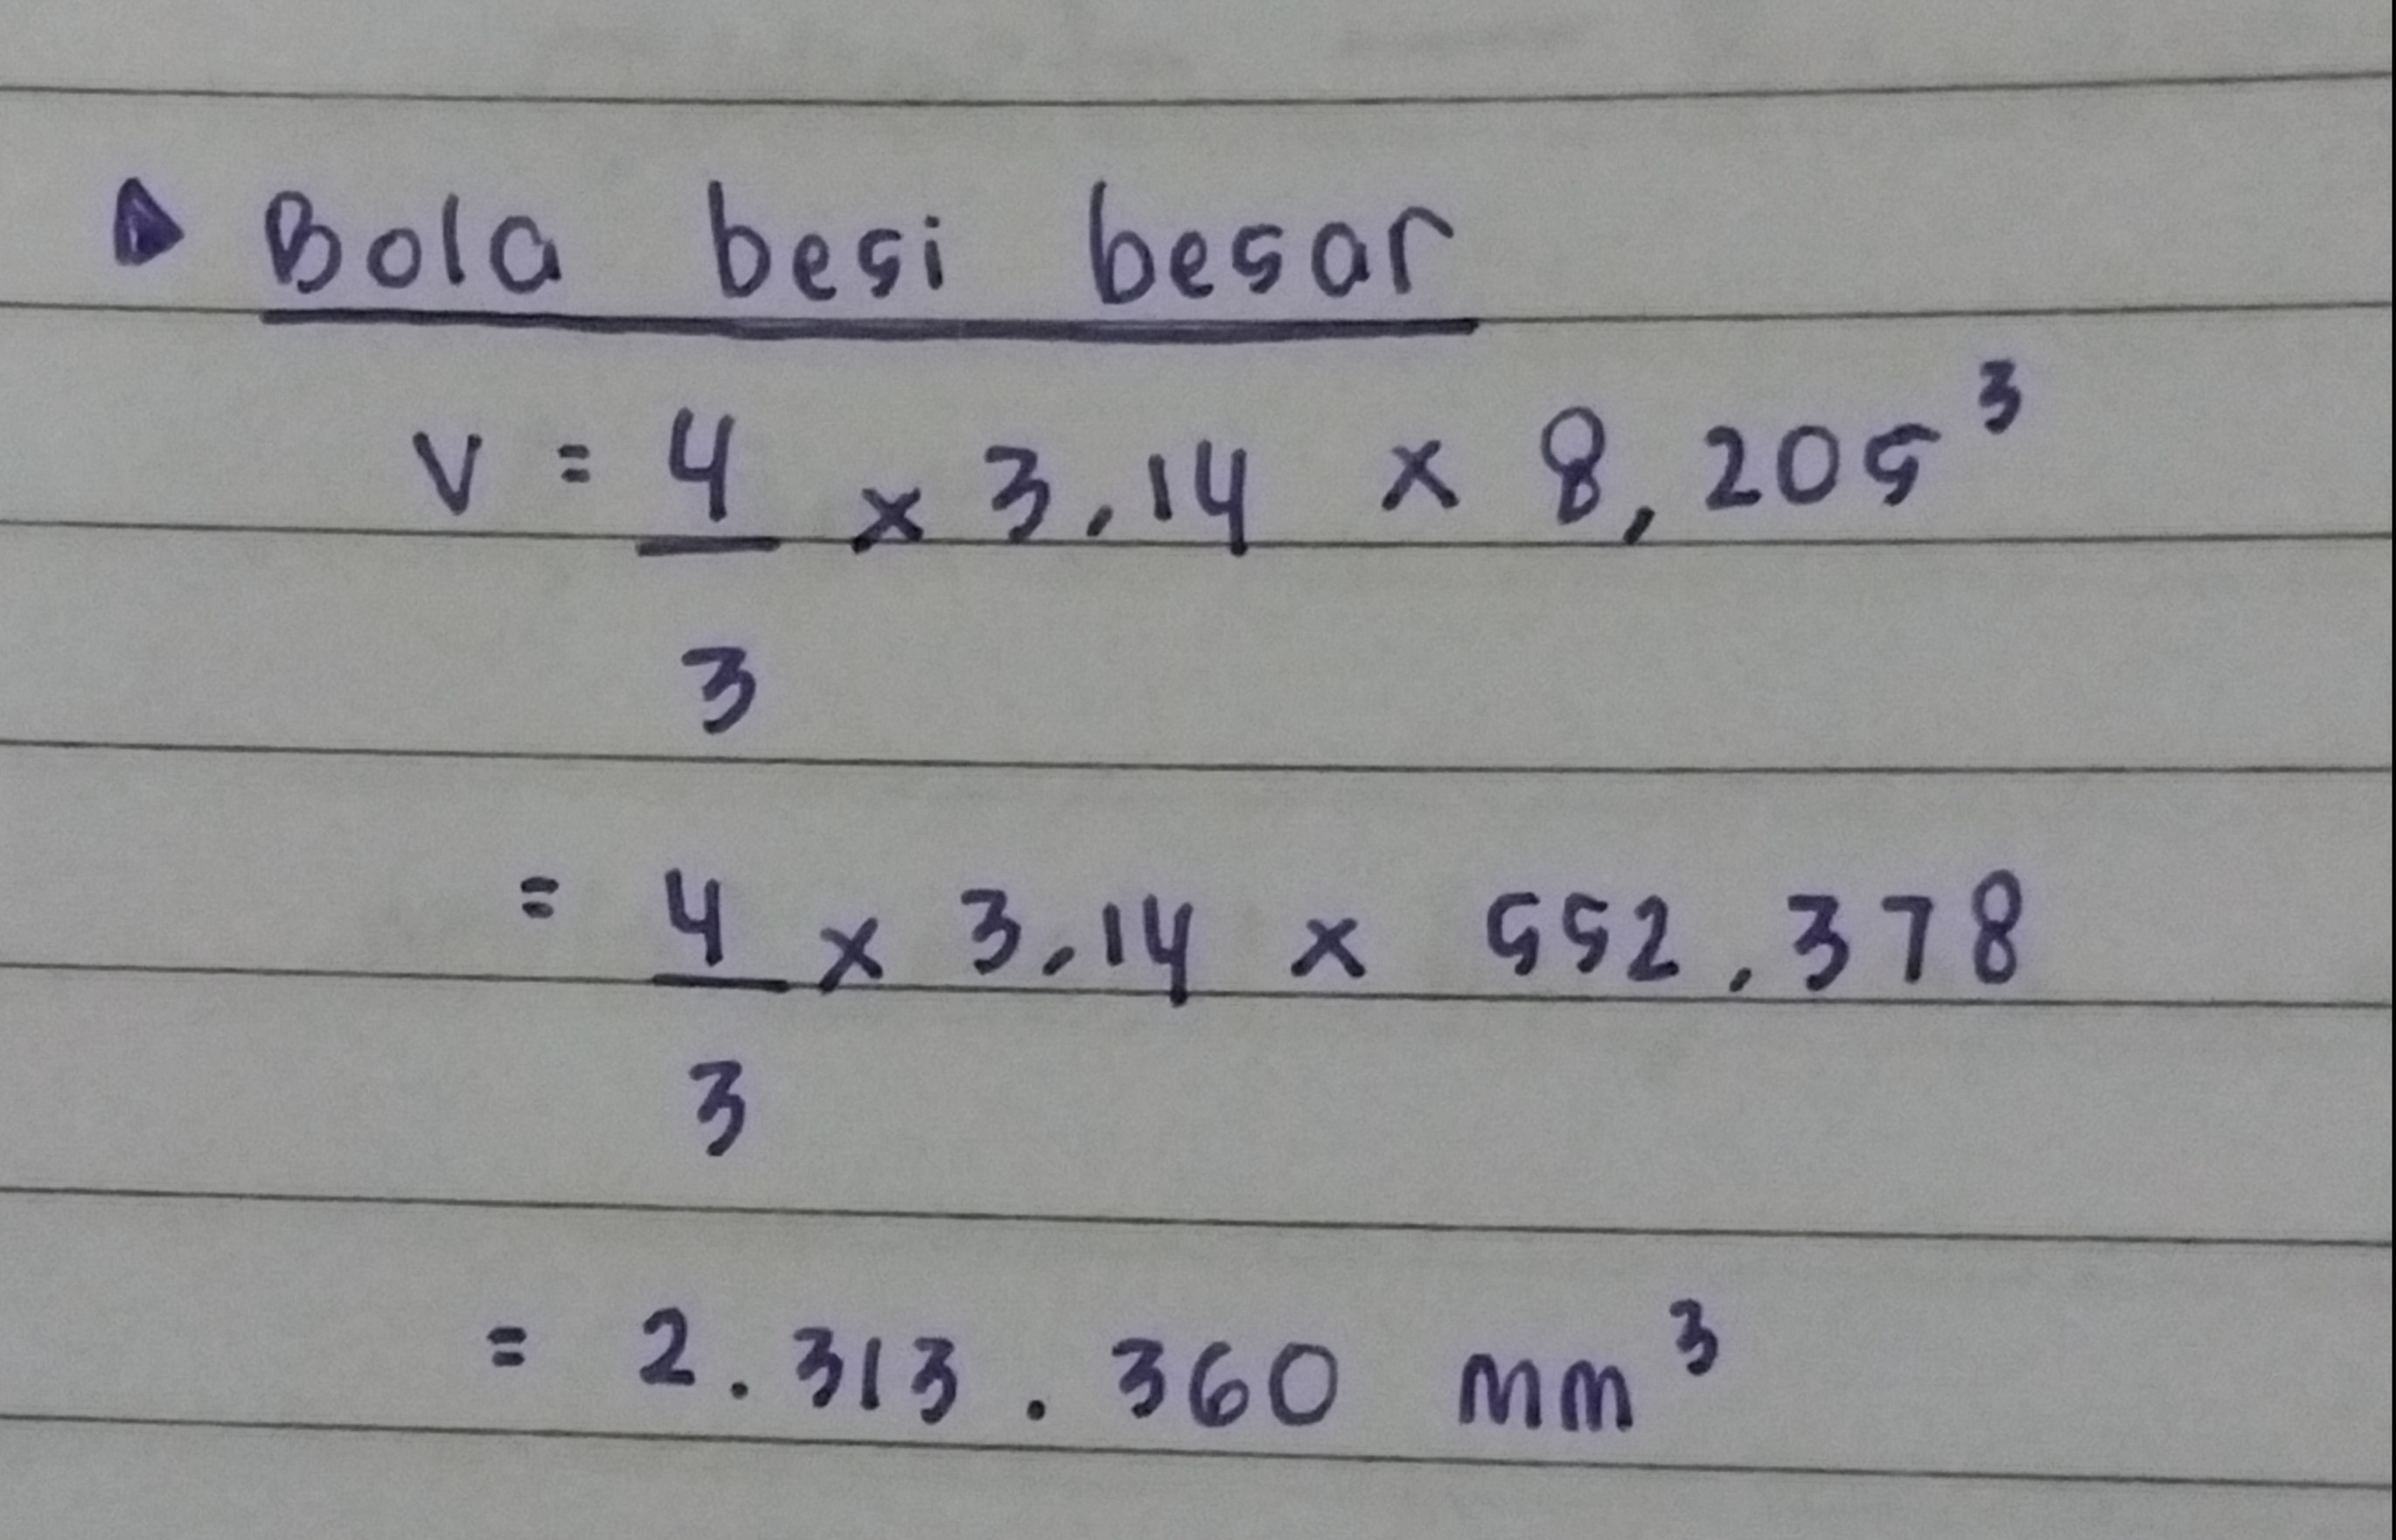 Bola besi besar
V = 4/3 x 3,14 x 8,205³
= 4/3 x 3,14 x 552,378
= 2.313.360 mm³